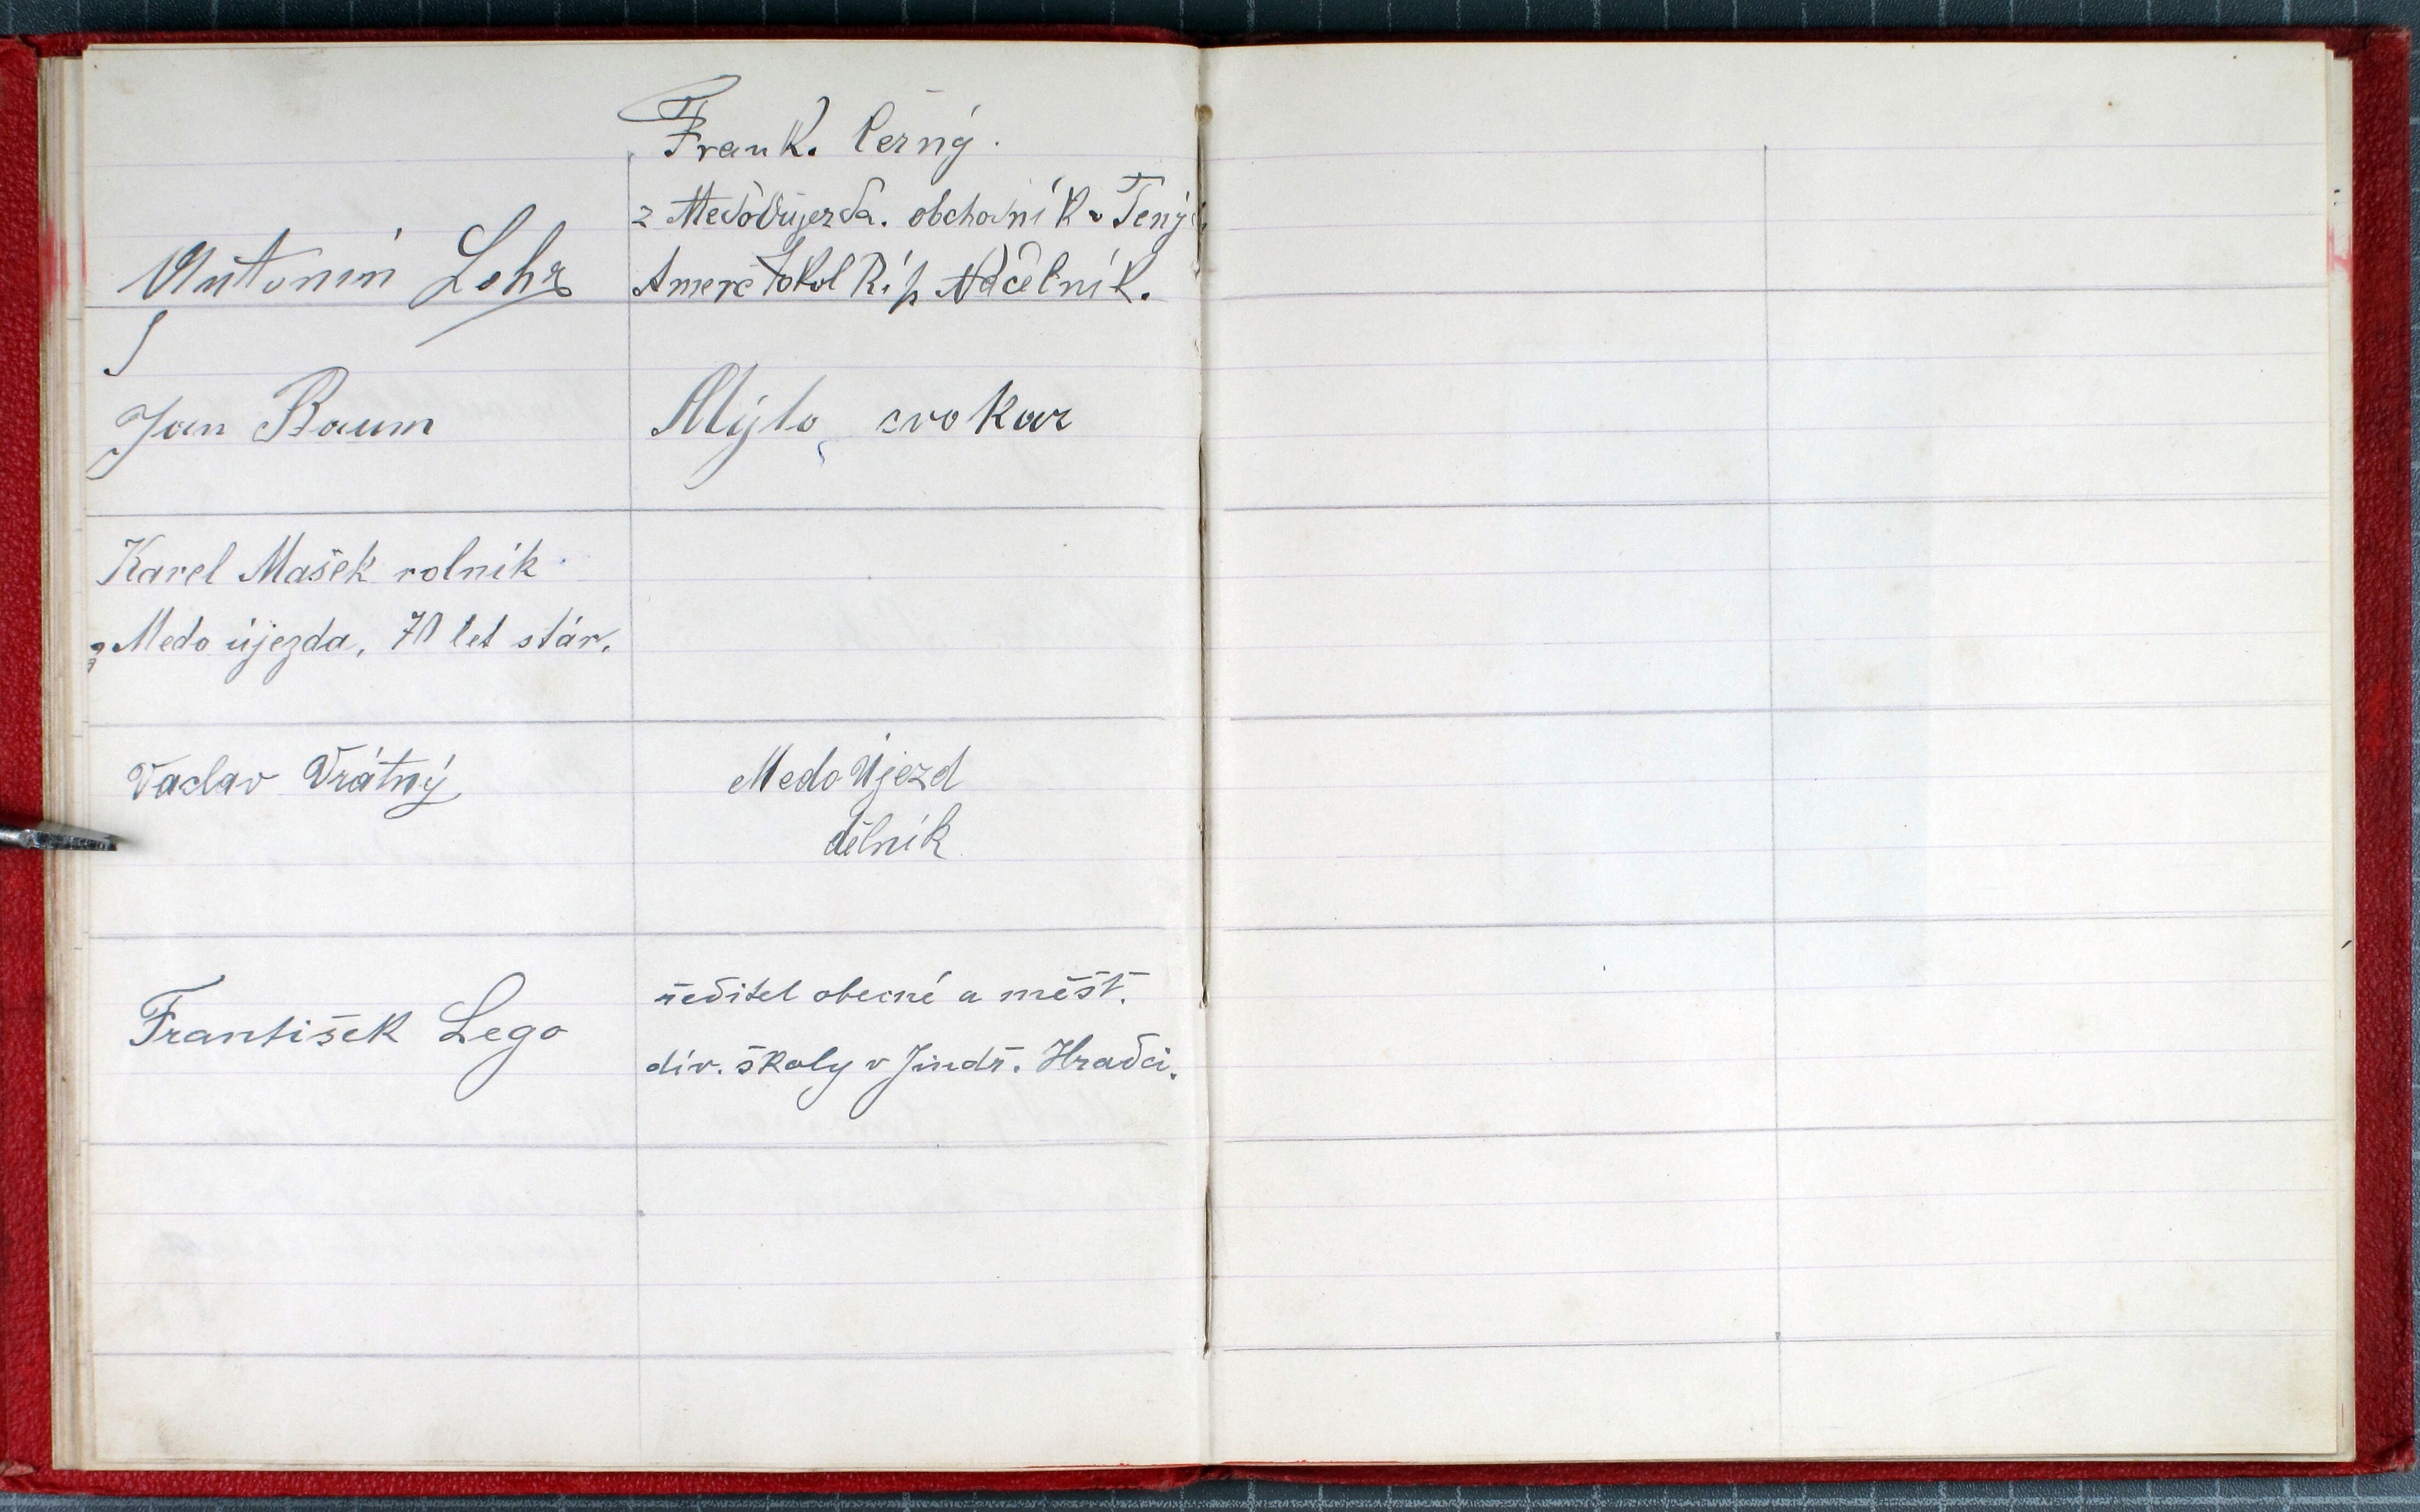 Frank. Černý.
z Medoújezda. obchodník v
Antonín Lohr
Amerč Sokol Říp Náčelník.
Jan Baum
Mýto, cvokař
Karel Mašek rolník
z Medo újezda, 70 let stár.
Vaclav Vrátný
Medo Újezd
dělník
František Lego
ředitel obecné a měšť.
dív. školy v Jindř. Hradci.